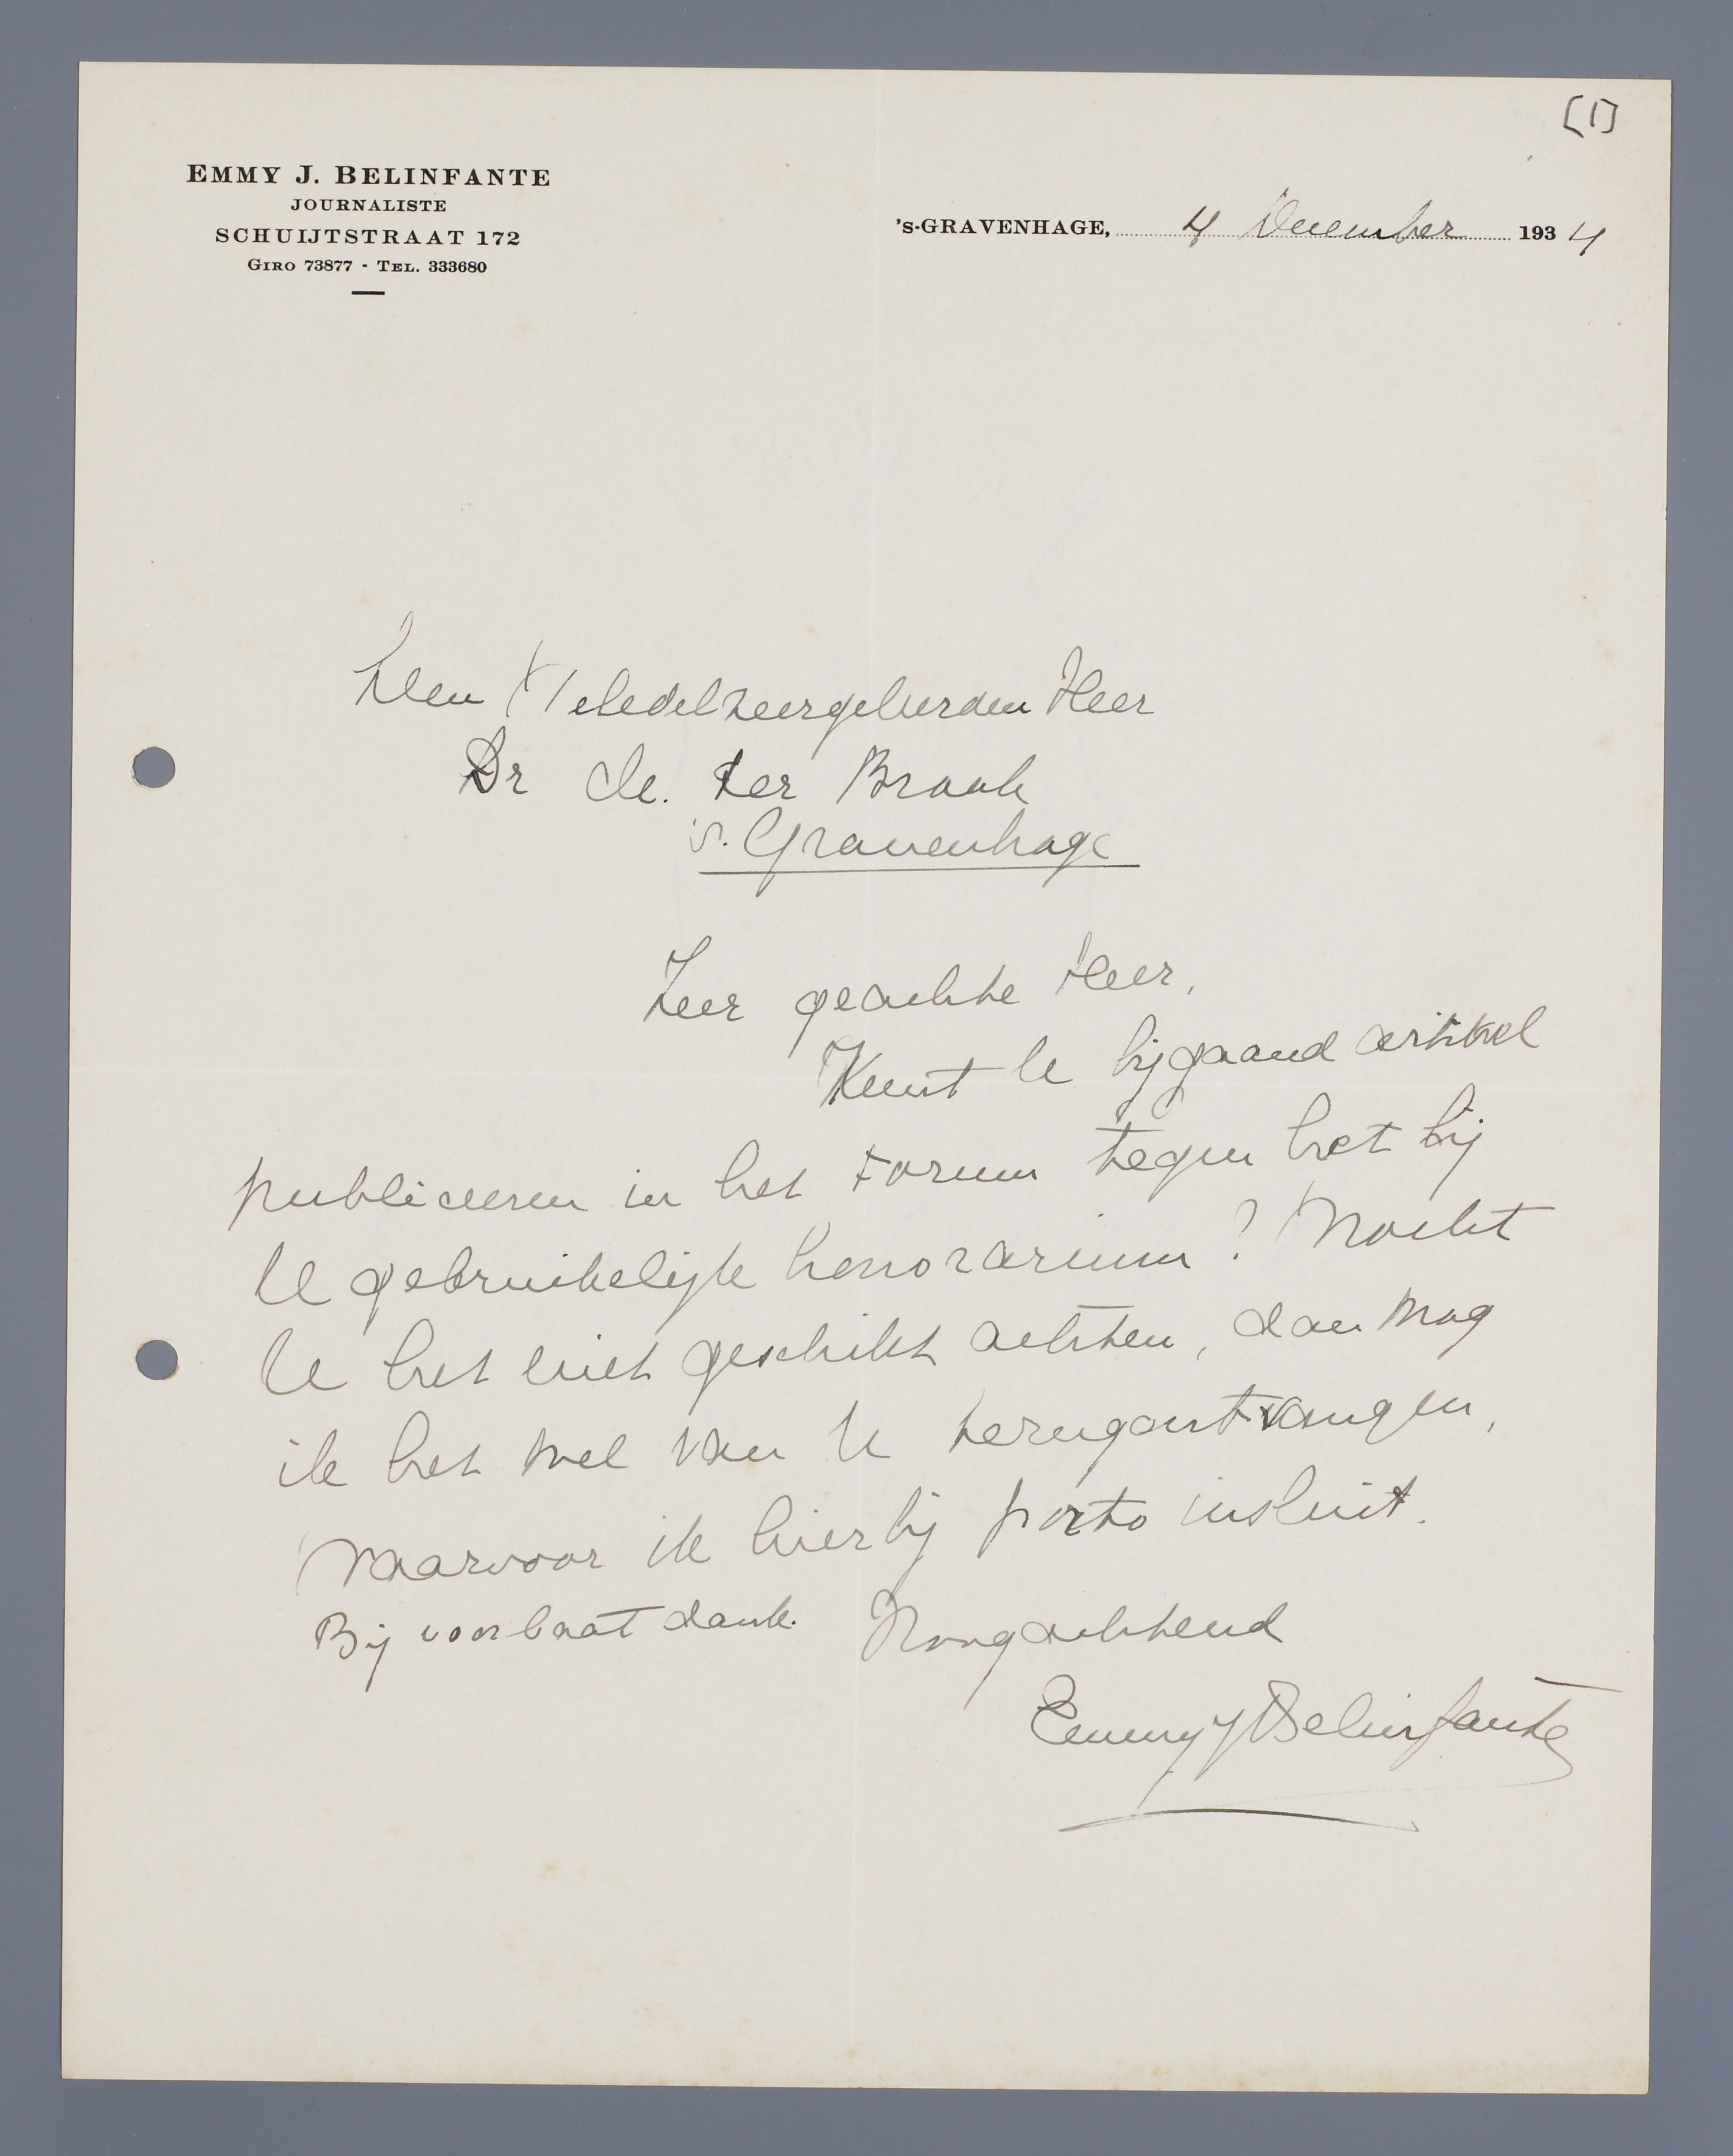 [1]
EMMY J. BELINFANTE
JOURNALISTE
SCHUIJTSTRAAT 172
GIRO 73877 - TEL. 333680
's-GRAVENHAGE, 4 December 1934
Den Weledelzeergeleerden Heer
Dr M. ter Braak
's. Gravenhage
Zeer geachte Heer,
Kunt U bijgaand artikel
publiceeren in het Forum tegen het bij
U gebruikelijk honorarium? Mocht
U het niet geschikt achten, dan mag
ik het wel van U terugontvangen,
waarvoor ik hierbij porto insluit.
Bij voorbaat dank. Hoogachtend
Emmy J Belinfante